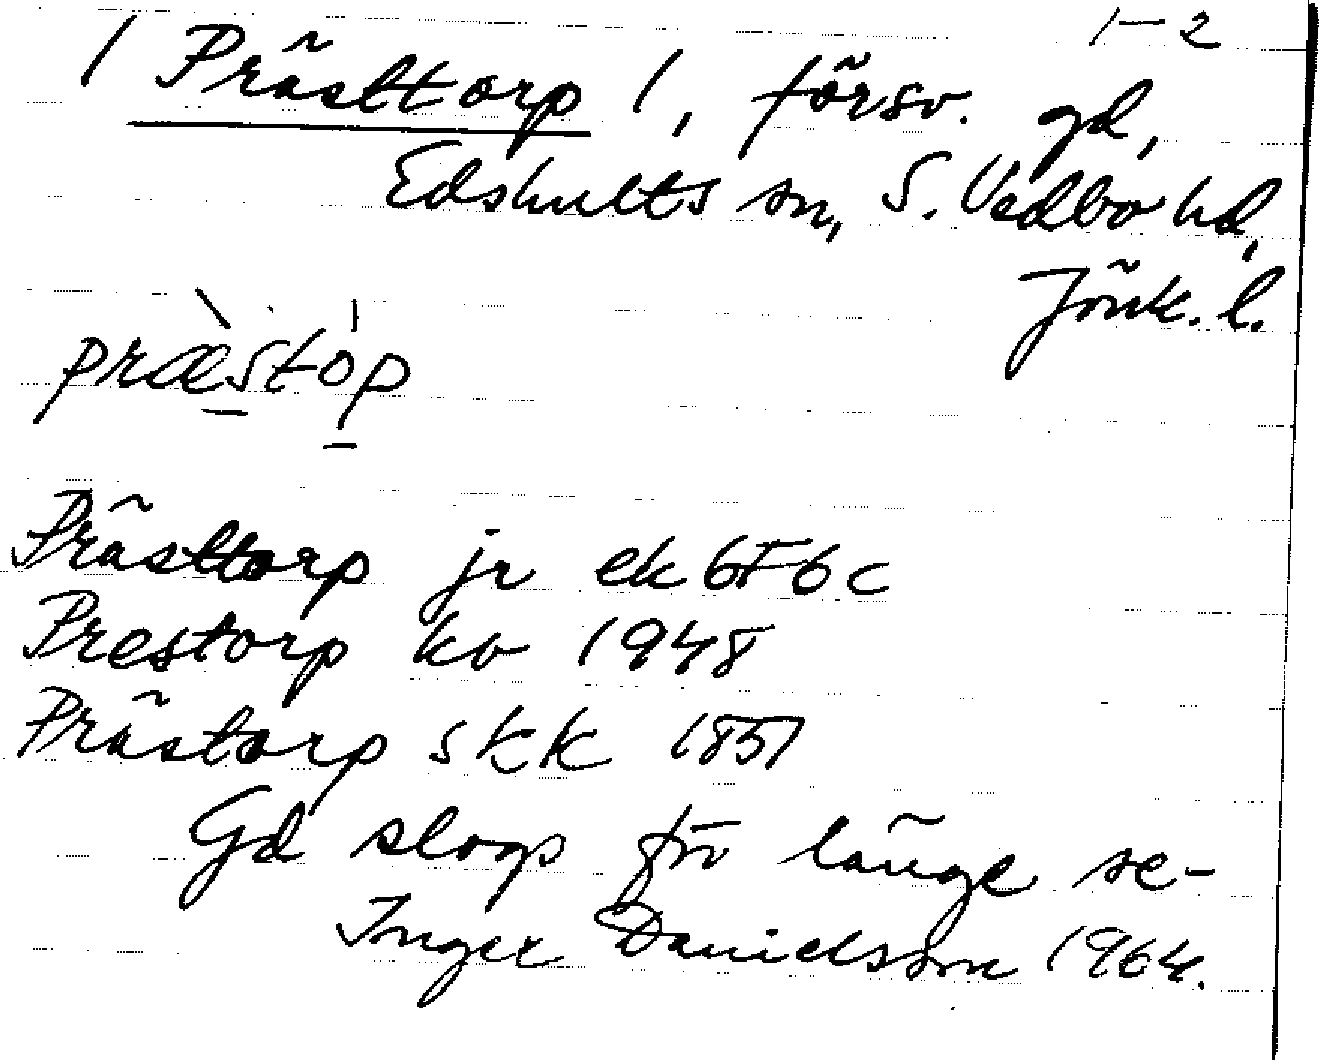 1–2
/ Prästtorp /, försv. gd,
Edshults sn, S. Vedbo hd,
Jönk. l.
præ̀stóp
Prästtorp jr ek 6F6c
Prestorp kb 1948
Prästorp skk 1851
Gd slogs för länge se-
Inger Danielsson 1964.